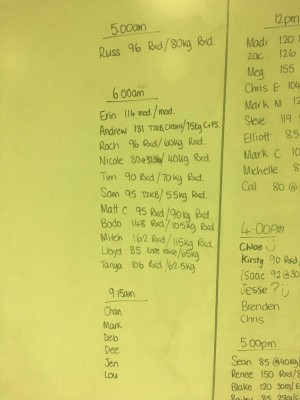 5:00am
Russ 96 Rxd/80kg Rxd.
6:00am
Erin 114 mod./mod.
Andrew 131 T2KB,
Rach 96 Rxd/60kg Rxd.
Nicole 80 / 40kg Rxd.
Tim 90 Rxd/70kg Rxd.
Sam 95 T2KB/55kg Rxd.
Matt C 95 Rxd/90kg Rxd.
Bodo 148 Rxd/105kg Rxd.
Mitch 162 Rxd/115kg Rxd.
Lloyd 85 knee raise/65kg
Tanya 106 Rxd/62.5kg
9:15am
Chan
Mark
Deb
Dee
Jen
Lou
12pm
Madi 120
Zac 126
Meg 155
Chris E 104
Mark M 12
Steve 119
Elliott 85
Mark C 10
Michelle 8
Cal 80 @
4:00pm
Chloe
Kirsty 90 Rxd/
Isaac 92 @30
Jesse ?
Brenden
Chris
5:00pm
Sean 85 @40kg/
Renee 150 Rxd/8
Blake 120 30kg/
85 25kg/